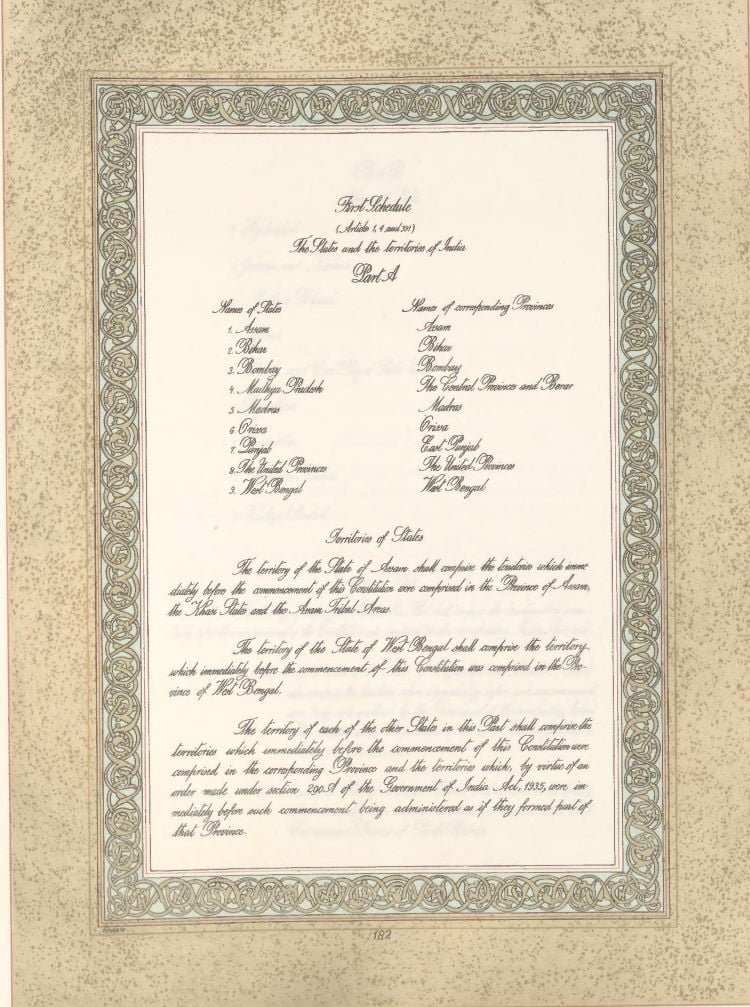 First Schedule
(Article 1, 4 and 391)
The States and the territories of India
Part A
Names of States Names of corresponding Provinces
1. Assam Assam
2. Bihar Bihar
3. Bombay Bombay
4. Madhya Pradesh The Central Provinces and Berar
5. Madras Madras
6. Orissa Orissa
7. Punjab East Punjab
8. The United Provinces The United Provinces
9. West Bengal West Bengal
Territories of States
The territory of the State of Assam shall comprise the territories which imme-
diately before the commencement of this Constitution were comprised in the Province of Assam,
the Khasi States and the Assam Tribal Areas.
The territory of the State of West Bengal shall comprise the territory
which immediately before the commencement of this Constitution was comprised in the Pro-
vince of West Bengal.
The territory of each of the other States in this Part shall comprise the
territories which immediately before the commencement of this Constitution were
comprised in the corresponding Province and the territories which, by virtue of an
order made under section 290A of the Government of India Act, 1935, were im-
mediately before such commencement being administered as if they formed part of
that Province.
182